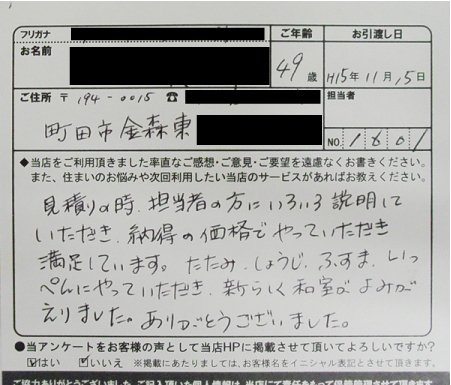 フリガナ
お名前
ご年齢
49歳
お引渡し日
H15年11月15日
ご住所 〒194-0015 ☎
町田市金森東
担当者
NO. 1601
◆当店をご利用頂きました率直なご感想・ご意見・ご要望を遠慮なくお書きください。
また、住まいのお悩みや次回利用したい当店のサービスがあればお教えください。
見積りの時、担当者の方にいろいろ説明して
いただき、納得の価格でやっていただき
満足しています。たたみ、しょうじ、ふすま、いっ
ぺんにやっていただき、新らしく和室がよみが
えりました。ありがとうございました。
●当アンケートをお客様の声として当店HPに掲載させて頂いてよろしいですか?
☑はい ☑いいえ ※掲載にあたりましては、お客様名をイニシャル表記とさせて頂きます。